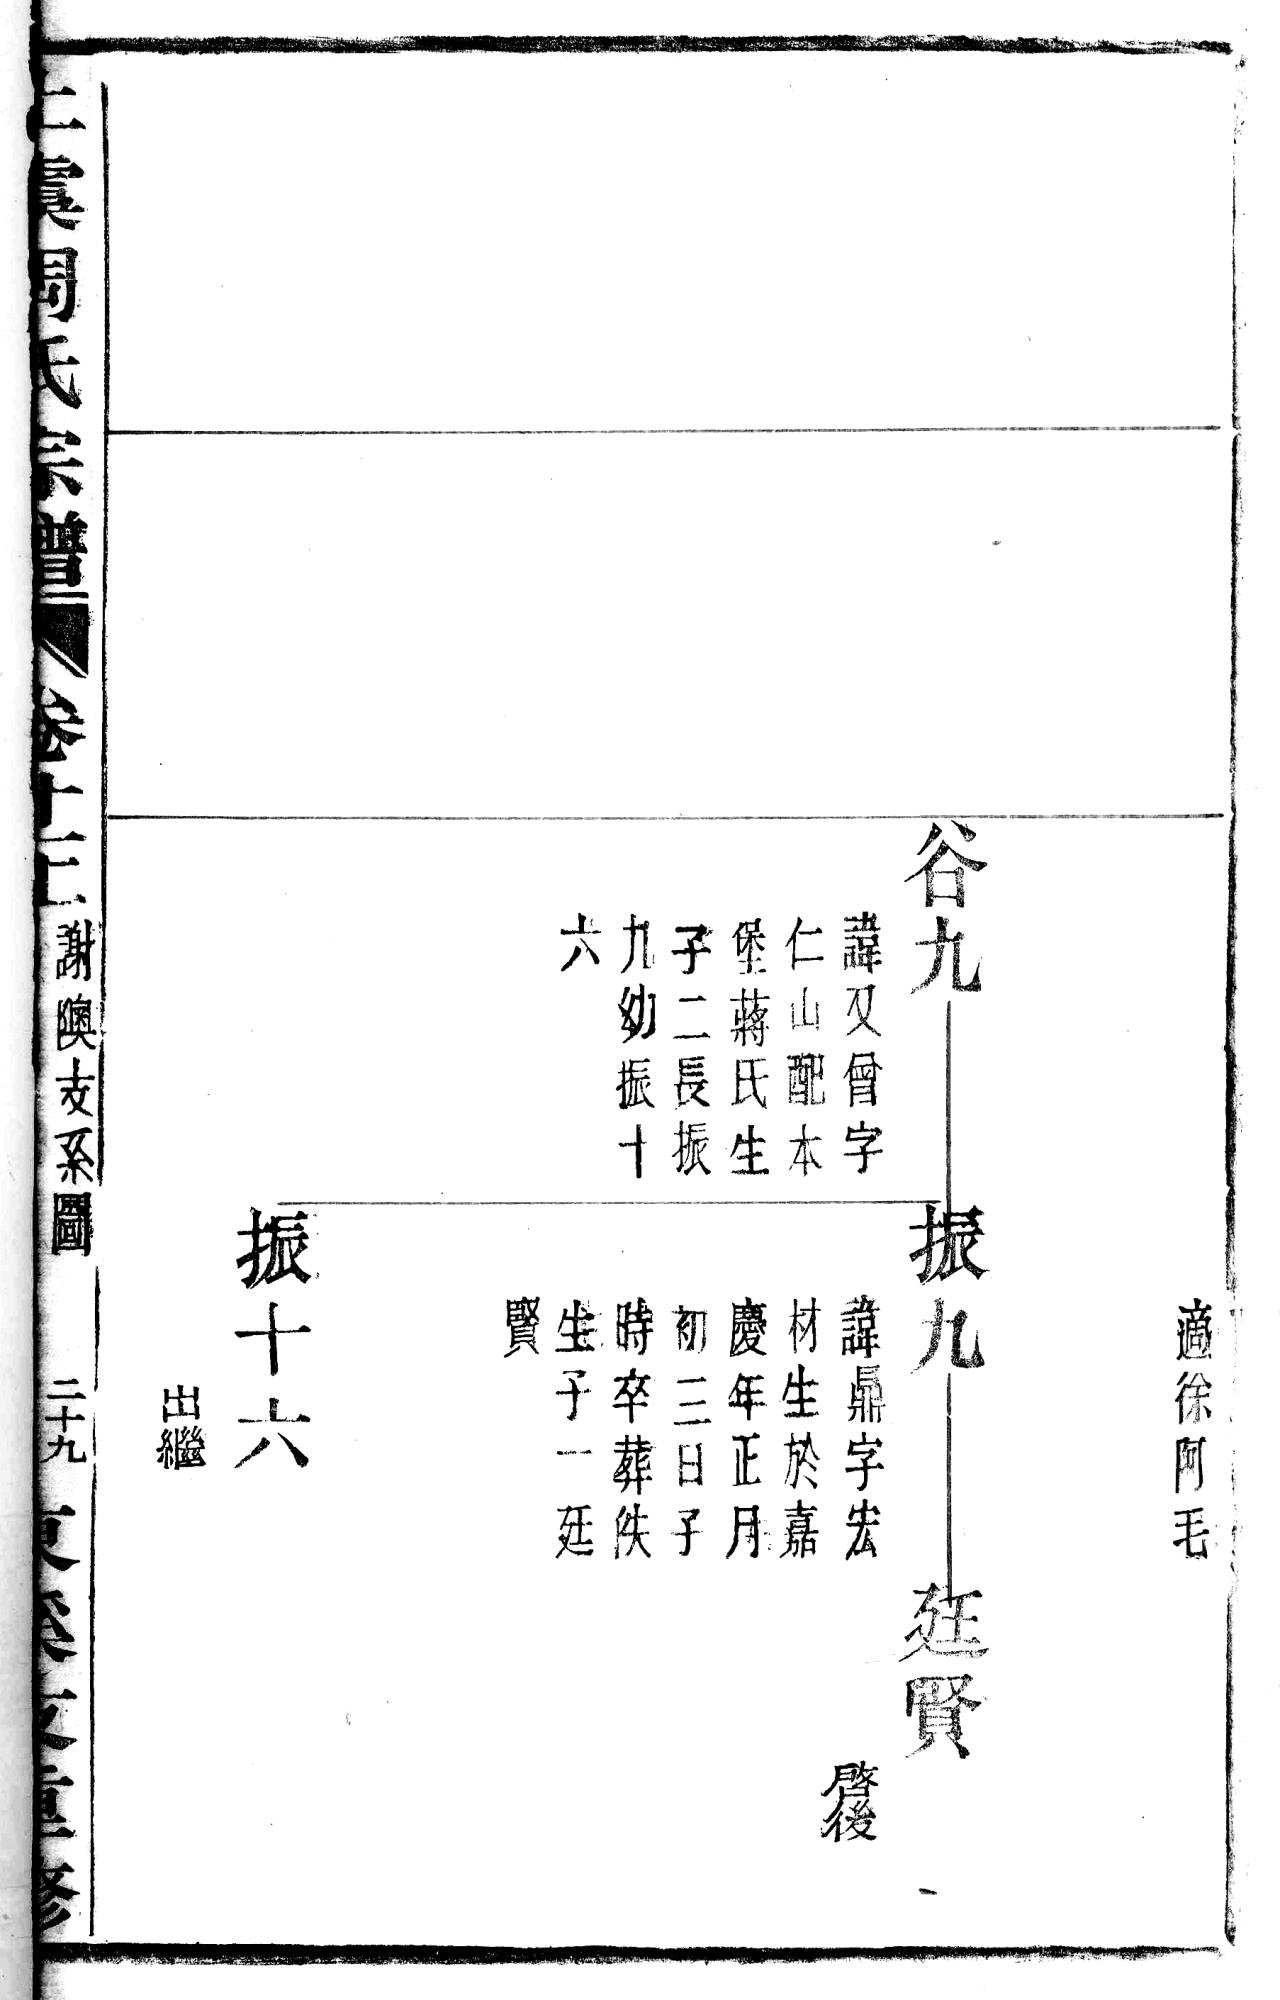 適徐阿毛
谷九
諱又曾字
仁山配本
堡蔣氏生
子二長振
九幼振十
六
振九
諱鼎字宏
材生於嘉
慶年正月
初三日子
時卒葬佚
生子一廷
賢
廷賢
啓後
振十六
出繼
上虞周氏宗譜
卷十
謝隩支系圖
二十九
東 支重修